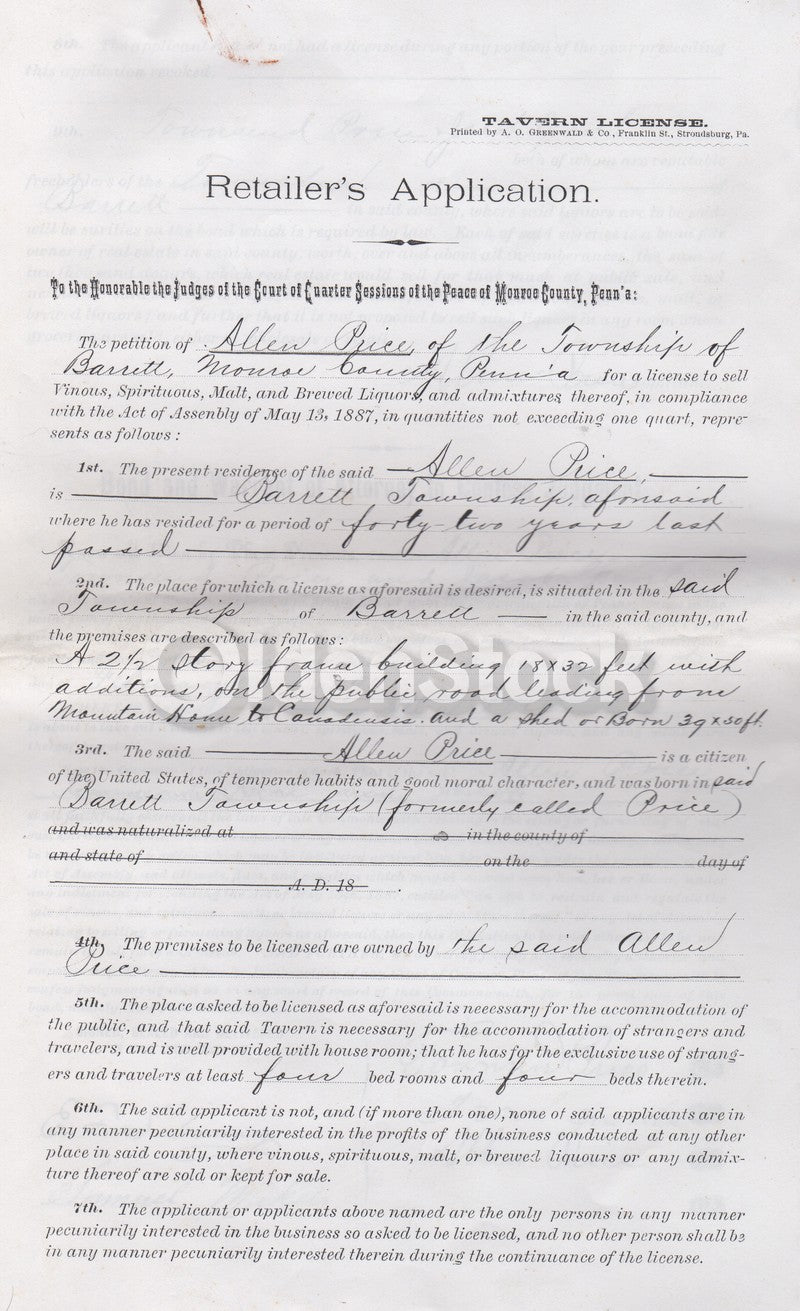 TAVERN LICENSE.
Printed by A. O. GREENWALD & CO., Franklin St., Strondsburg, Pa.
Retailer's Application.
To the Honorable the Judges of the Court of Quarter Sessions of the Peace of Monroe County, Penn'a:
The petition of Allen Price, of the Township of
Barrett, Monroe County, Penn'a for a license to sell
Vinous, Spirituous, Malt, and Brewed Liquors, and admixtures thereof, in compliance
with the Act of Assembly of May 13, 1887, in quantities not exceeding one quart, repre-
sents as follows:
1st. The present residence of the said Allen Price,
is Barrett Township, aforsaid
where he has resided for a period of forty-two years last
passed
2nd. The place for which a license as aforesaid is desired, is situated in the said
Township of Barrett in the said county, and
the premises are described as follows:
A 2 1/2 story frame building 18 x 32 feet with
additions, on the public road leading from
Mountain Home to Canadensis. and a shed or Barn 39 x 50 ft.
3rd. The said Allen Price is a citizen
of the United States, of temperate habits and good moral character, and was born in said
Barrett Township (formerly called Price)
and was naturalized at in the county of
and state of on the day of
A. D. 18 .
4th. The premises to be licensed are owned by the said Allen
Price
5th. The place asked to be licensed as aforesaid is neeessary for the accommodation of
the public, and that said Tavern is necessary for the accommodation of strangers and
travelers, and is well provided with house room; that he has for the exclusive use of strang-
ers and travelers at least four bed rooms and four beds therein.
6th. The said applicant is not, and (if more than one), none of said applicants are in
any manner pecuniarily interested in the profits of the business conducted at any other
place in said county, where vinous, spirituous, malt, or brewed liquours or any admix-
ture thereof are sold or kept for sale.
7th. The applicant or applicants above named are the only persons in any manner
pecuniarily interested in the business so asked to be licensed, and no other person shall be
in any manner pecuniarily interested therein during the continuance of the license.
OldenStock